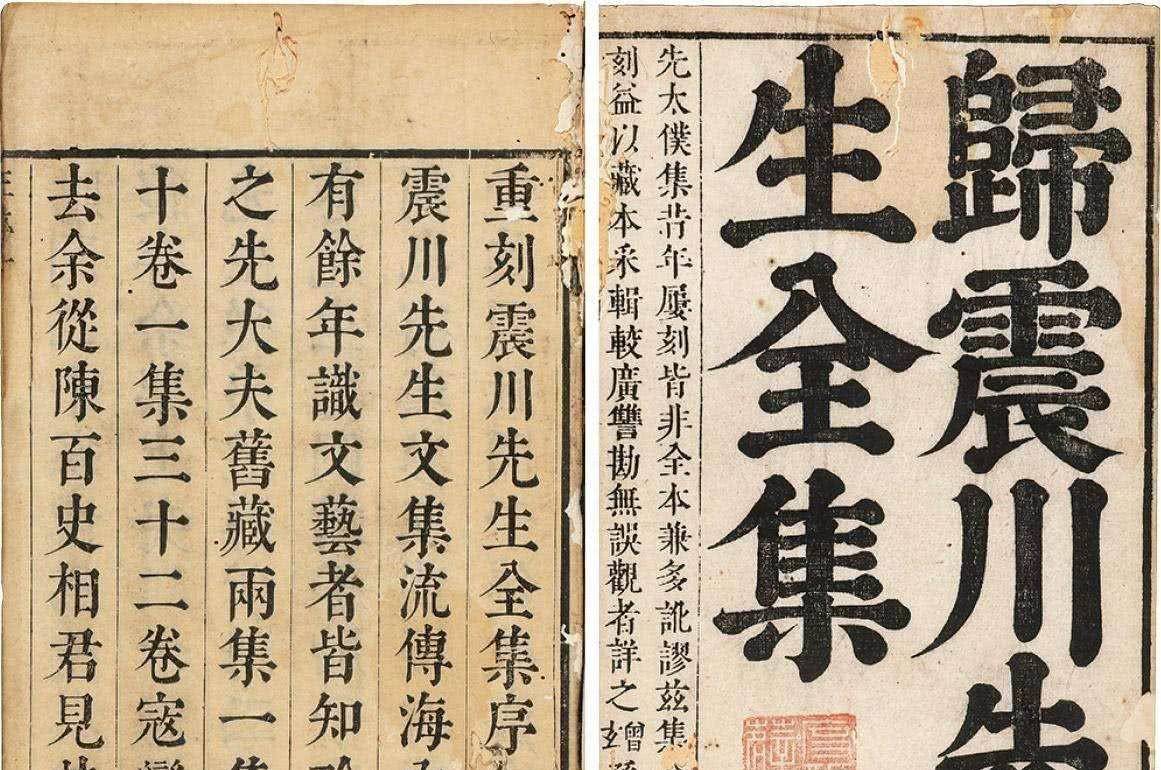 歸震川先
生全集
先太僕集昔年屢刻皆非全本兼多訛謬茲集
刻益以藏本采輯較廣讐勘無誤觀者詳之
重刻震川先生全集序
震川先生文集流傳海
有餘年識文藝者皆知
之先大夫舊藏兩集一
十卷一集三十二卷寇
去余從陳百史相君見